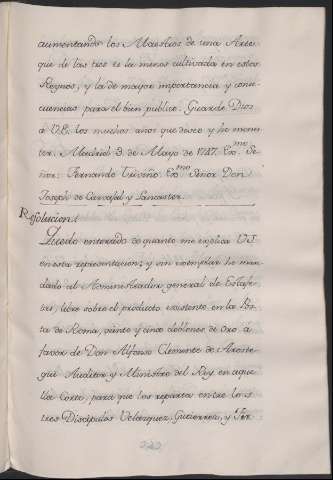 aumentando los Maestros de una Arte,
que de las tres es la menos cultivada en estos
Reynos, y la de mayor importancia y conse-
cuencias para el bien publico. Guarde Dios
à V.E. los muchos años que deseo y he menes-
ter. Madrid 3. de Mayo de 1747. Exmo. Se-
ñor: Fernando Triviño. Exmo. Señor Don
Joseph de Carvajal y Lancaster.
Resolucion.
Quedo enterado de quanto me explica V.I.
en esta representacion; y sin exemplar he man-
dado al Administrador general de Estafe-
tas, libre sobre el producto existente en la Pos-
ta de Roma, veinte y cinco doblones de Oro à
favor de Don Alfonso Clemente de Aroste-
gui Auditor y Ministro del Rey en aque-
lla Corte, para que los reparta entre los
tres Discipulos Velazquez, Gutierrez, y Fer
222